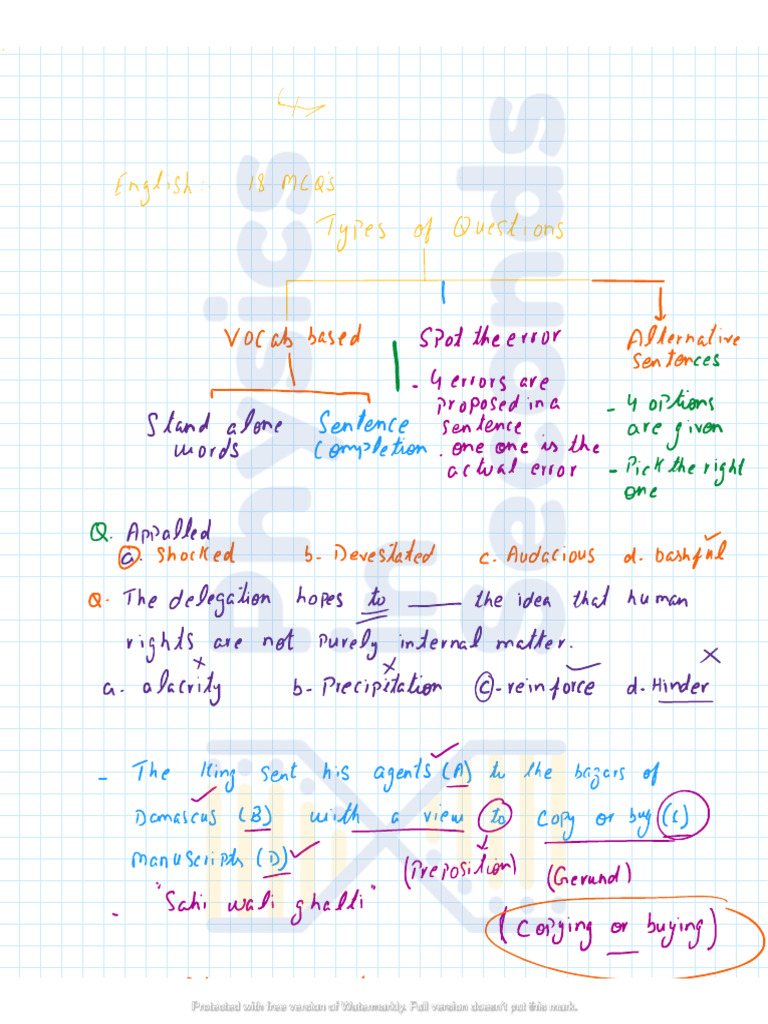 English:- 18 MCQ's
Types of Questions
Vocab based
Stand alone
words
Sentence
Completion
Spot the error
- 4 errors are
proposed in a
sentence
. one one is the
actual error
Alternative
Sentences
- 4 options
are given
- Pick the right
one
Q. Appalled
a. Shocked b- Devestated c. Audacious d. bashful
Q. The delegation hopes to ____ the idea that human
rights are not purely internal matter.
a. alacrity b- Precipitation c-reinforce d. Hinder
- The King sent his agents (A) to the bazars of
Damascus (B) with a view to copy or buy (C)
manuscripts (D)
(Preposition) (Gerund)
- "Sahi wali ghalti"
(Copying or buying)
Physics
in
Seconds
Protected with free version of Watermarkly. Full version doesn't put this mark.